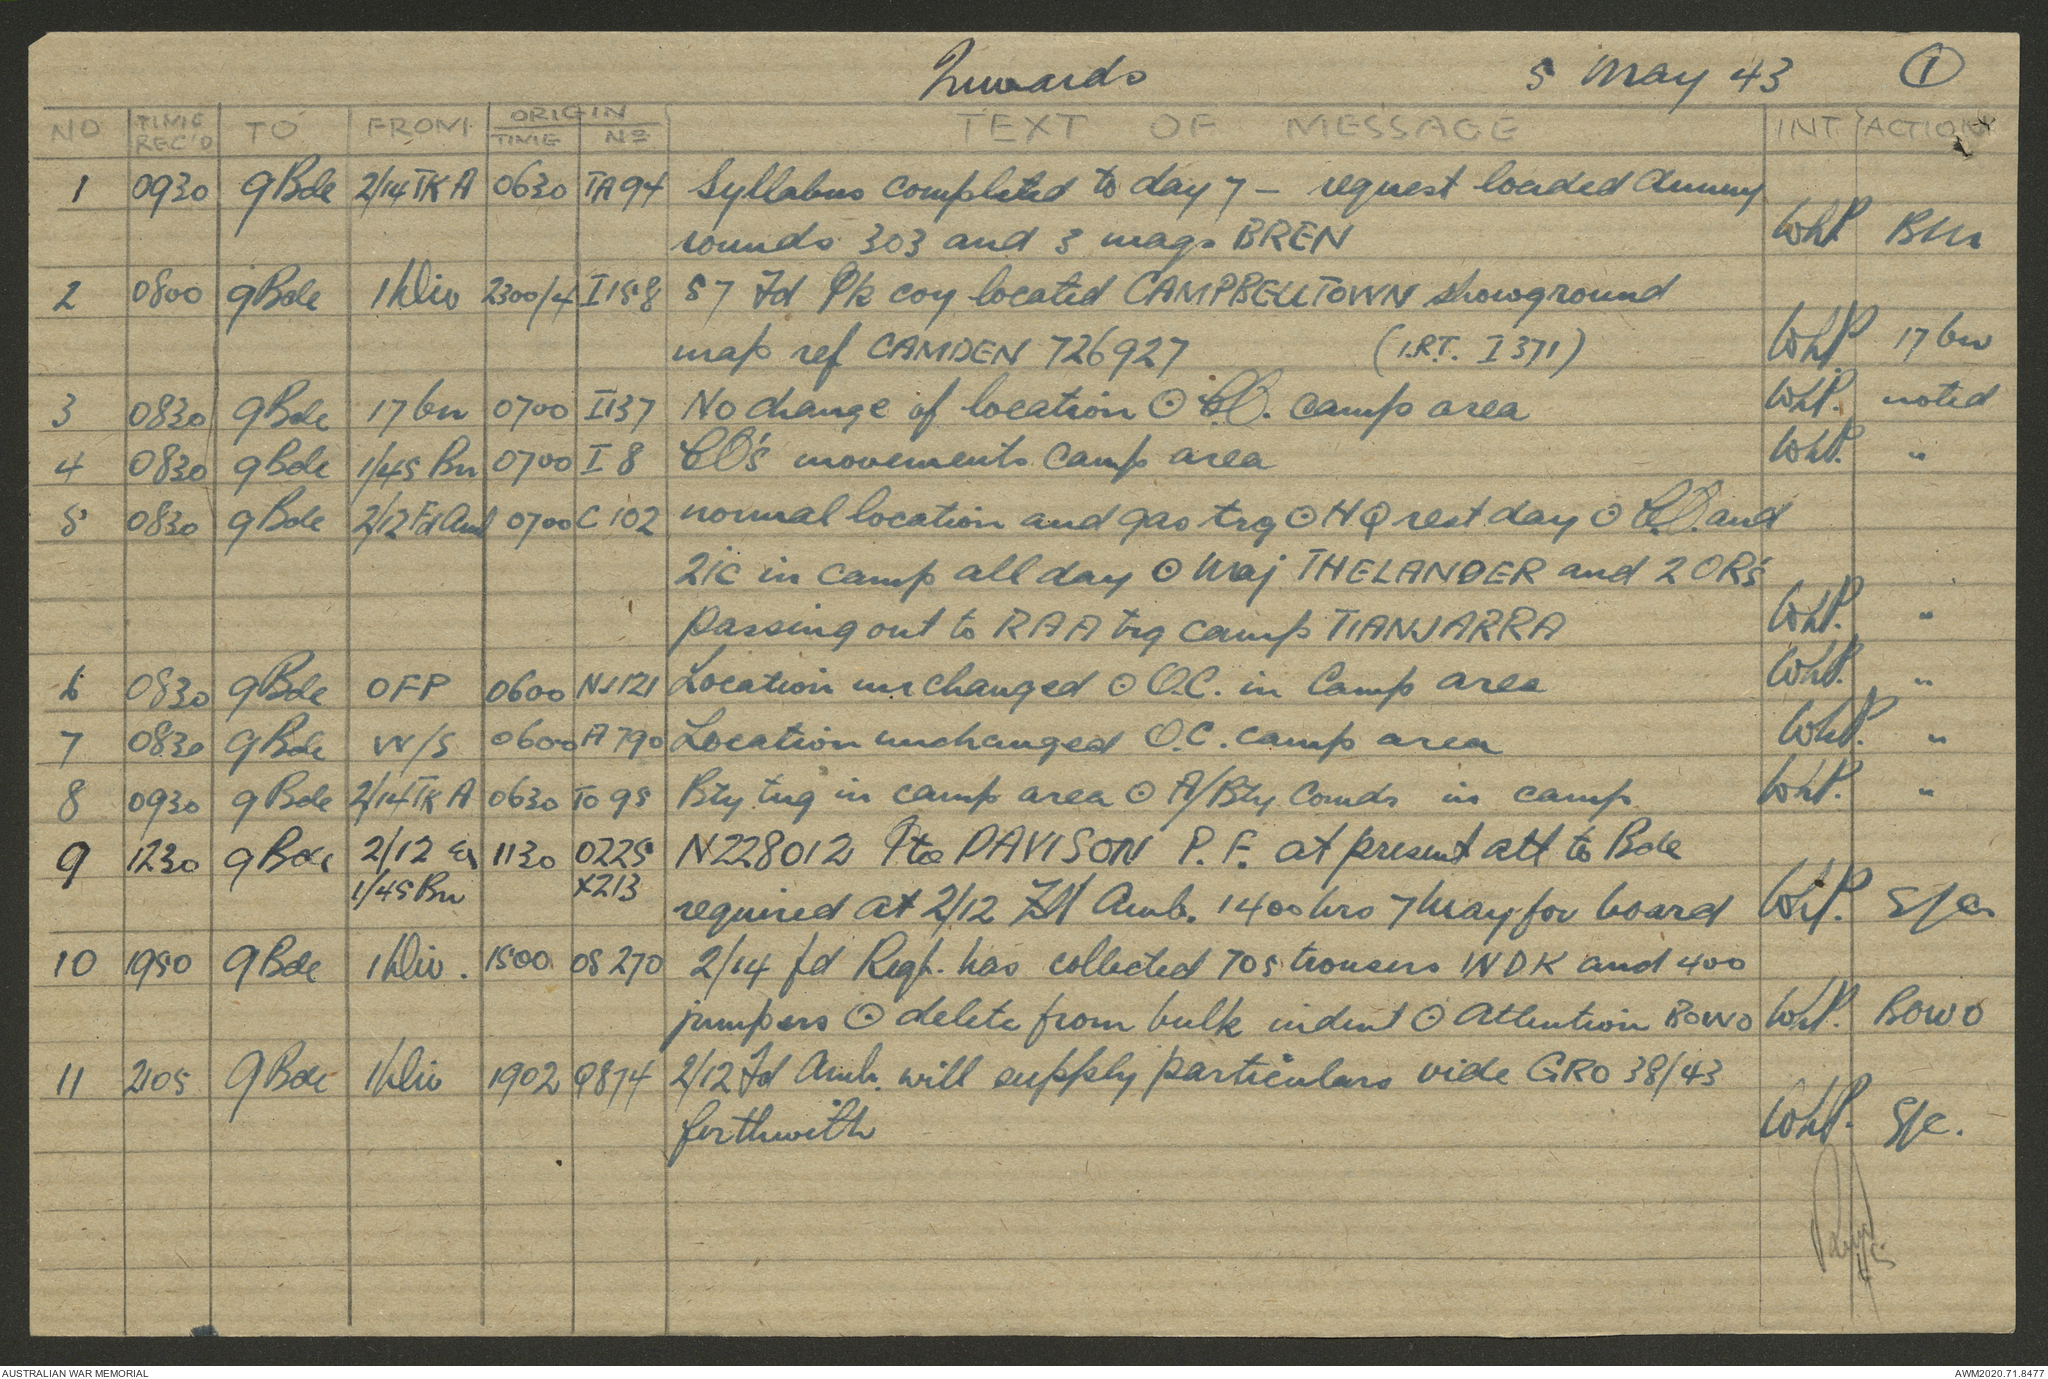 Inwards 5 May 43 ①
NO TIME REC'D TO FROM ORIGIN TIME Nº TEXT OF MESSAGE INT. ACTION
1 0930 9Bde 2/14 TK A 0630 TA94 Syllabus completed to day 7 – request loaded dummy
rounds 303 and 3 mags BREN WhP. BM
2 0800 9Bde 1 Div 2300/4 I158 57 Fd Pk coy located CAMPBELLTOWN showground
map ref CAMDEN 726927 (I.R.T. I 371) WhP 17 bn
3 0830 9Bde 17 bn 0700 I137 No change of location ⊙ C.O. camp area WhP. noted
4 0830 9Bde 1/45 Bn 0700 I 8 CO's movements camp area WhP. "
5 0830 9Bde 2/12 Fd Amb 0700 C 102 normal location and gas trg ⊙ HQ rest day ⊙ C.O. and
2ic in camp all day ⊙ Maj THELANDER and 2 OR's
passing out to RAA trg camp TIANJARRA WhP. "
6 0830 9Bde OFP 0600 NJ121 Location unchanged ⊙ O.C. in Camp area WhP. "
7 0830 9Bde W/S 0600 A790 Location unchanged O.C. camp area WhP. "
8 0930 9Bde 2/14 TK A 0630 TO 95 Bty trg in camp area ⊙ A/Bty Comds in camp WhP. "
9 1230 9Bde 2/12 1130 0225 N228012 Pte DAVISON P. F. at present att to Bde
1/45 Bn X213 required at 2/12 Fd Amb. 1400 hrs 7 May for board WhP. S/c
10 1950 9Bde 1 Div. 1500 OS 270 2/14 fd Regt. has collected 705 trousers WDK and 400
jumpers ⊙ delete from bulk indent ⊙ Attention BOWO WhP. BOWO
11 2105 9Bde 1 Div 1902 Q874 2/12 Fd Amb. will supply particulars vide GRO 38/43
forthwith WhP. S/c.
AUSTRALIAN WAR MEMORIAL AWM2020.71.8477